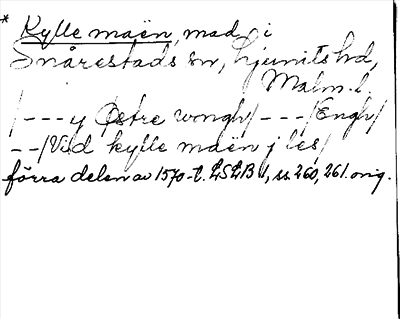 * Kylle maën, mad i
Snårestads sn, Ljunits hd,
Malm. l.
/---y Østre wongh/---/Engh/
--/Vid kylle maën j les/
förra delen av 1570-t. LSLB 1, ss. 260, 261. orig.